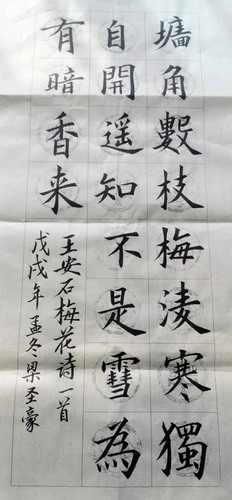 墻角數枝梅淩寒獨
自開遥知不是雪為
有暗香来
王安石梅花诗一首
戊戌年孟冬梁圣豪